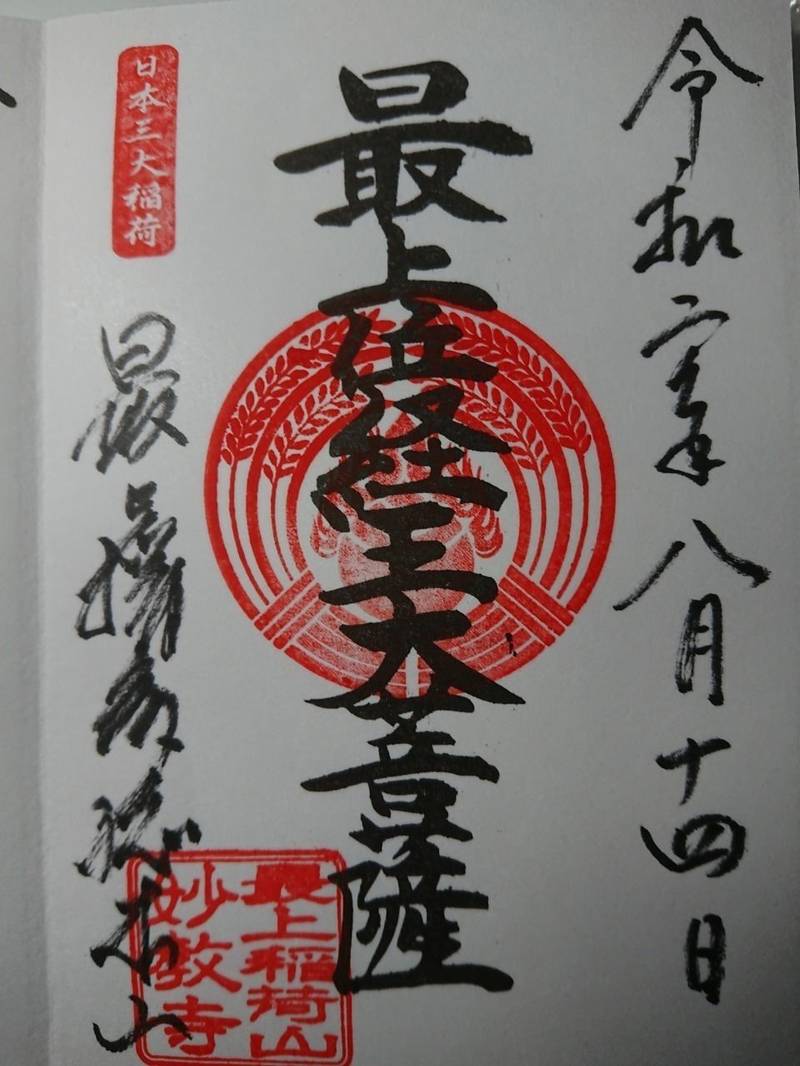 令和元年八月十四日
最上位経王大菩薩
日本三大稲荷
最上稲荷総本山
最上稲荷山
妙教寺